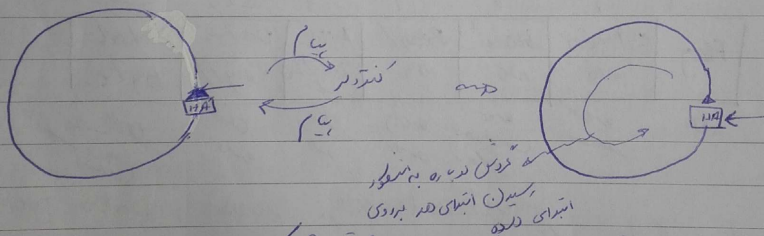 پیام
کنترلر
پیام
HA
HA
گردش دوباره به منظور
رسیدن ابتدای هد بر روی
ابتدای داده